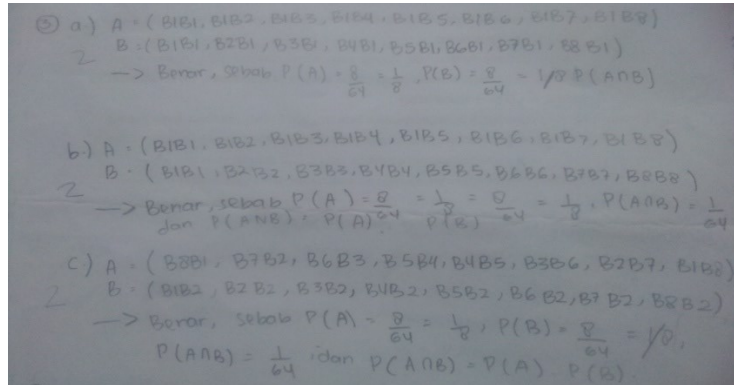 ③ a.) A = (B1B1, B1B2, B1B3, B1B4, B1B5, B1B6, B1B7, B1B8)
B = (B1B1, B2B1, B3B1, B4B1, B5B1, B6B1, B7B1, B8B1)
2
—> Benar, sebab P(A) = 8/64 = 1/8, P(B) = 8/64 = 1/8 P(A∩B)
b.) A = (B1B1, B1B2, B1B3, B1B4, B1B5, B1B6, B1B7, B1B8)
B = (B1B1, B2B2, B3B3, B4B4, B5B5, B6B6, B7B7, B8B8)
2
—> Benar, sebab P(A) = 8/64 = 1/8 = 8/64 = 1/8, P(A∩B) = 1/64
dan P(A∩B) = P(A) P(B)
c.) A = (B8B1, B7B2, B6B3, B5B4, B4B5, B3B6, B2B7, B1B8)
B = (B1B2, B2B2, B3B2, B4B2, B5B2, B6B2, B7B2, B8B2)
2
—> Benar, sebab P(A) = 8/64 = 1/8, P(B) = 8/64 = 1/8,
P(A∩B) = 1/64, dan P(A∩B) = P(A) . P(B).